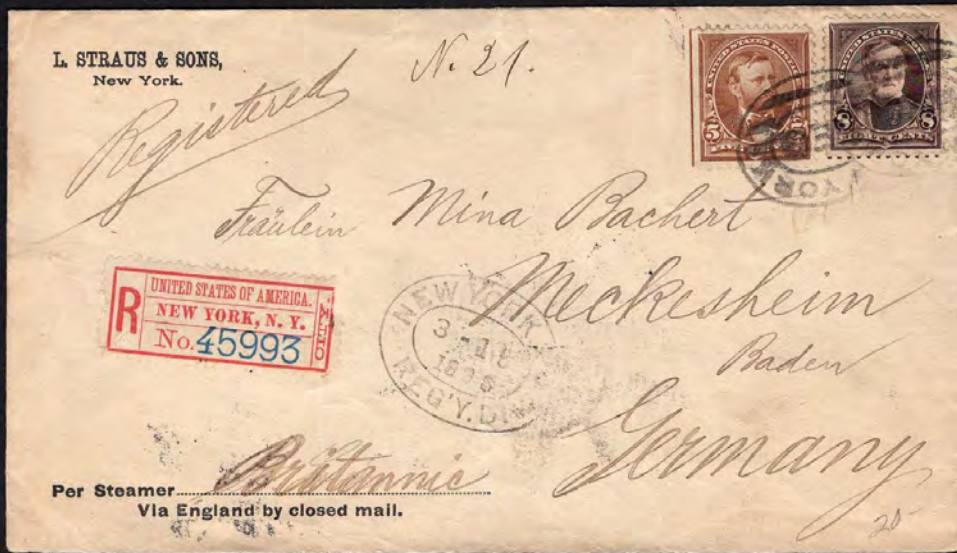 L. STRAUS & SONS,
New York.
N. 21.
Registered
UNITED STATES
5
8
EIGHT CENTS
YORK
Fräulein Mina Bachert
Meckesheim
Baden
Germany
R
UNITED STATES OF AMERICA.
NEW YORK, N. Y.
No. 45993
NEW YORK
3
REG'Y. DIV
Per Steamer Britannic
Via England by closed mail.
20-